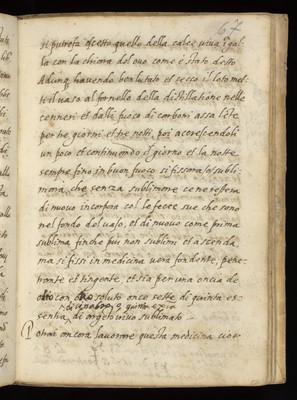 67
si putrefà eccetto quello della calce viva i gal-
la con la chiara del ovo come è stato detto
Adunq havendo ben lutato et secco il loto met-
te il vaso al fornello della distillatione nelle
cenneri et dalli fuoco di carboni assa lete
per tre giorni et tre notti poi acrescendoli
un poco et continovando il giorno et la notte
sempre fino in buon fuoco si fissara, o subli-
mara, che senza sublimare cene resera
di nuovo incorpora col le fecce sue che sono
nel fondo del vaso, et di nuovo come prima
sublima finche piu non sublimi et ascenda
ma si fissi in medicina vera fondente, pene-
trante et tingente, et sia per una oncia de
con soluto once sette di quinta es-
di cinabro, quinta
sentia, di argento vivo sublimato
Potrai ancora lavorare questa medicina cioe